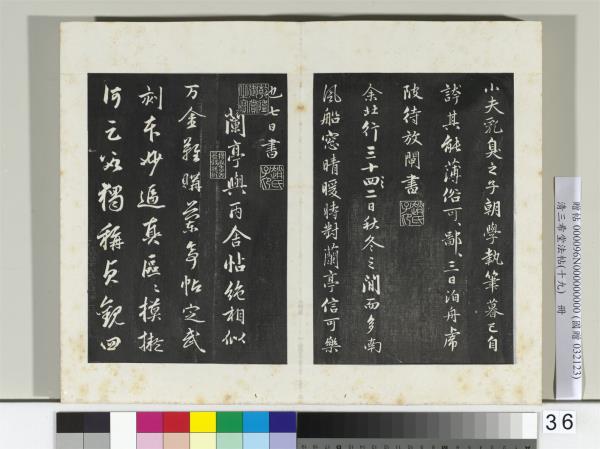 小夫乳臭之子朝學執筆暮已自
誇其能薄俗可鄙〻三日泊舟虎
陂待放閘書
余北行三十二日秋冬之間而多南
風船窓晴暖時對蘭亭信可樂
也七日書
蘭亭與丙舍帖絶相似
万金難購蘭亭帖定武
刻本妙逼真區〻模擬
何之數獨稱貞觀四
贈帖 000096N000000000 (國贈 032123)
清三希堂法帖(十九) 冊
36